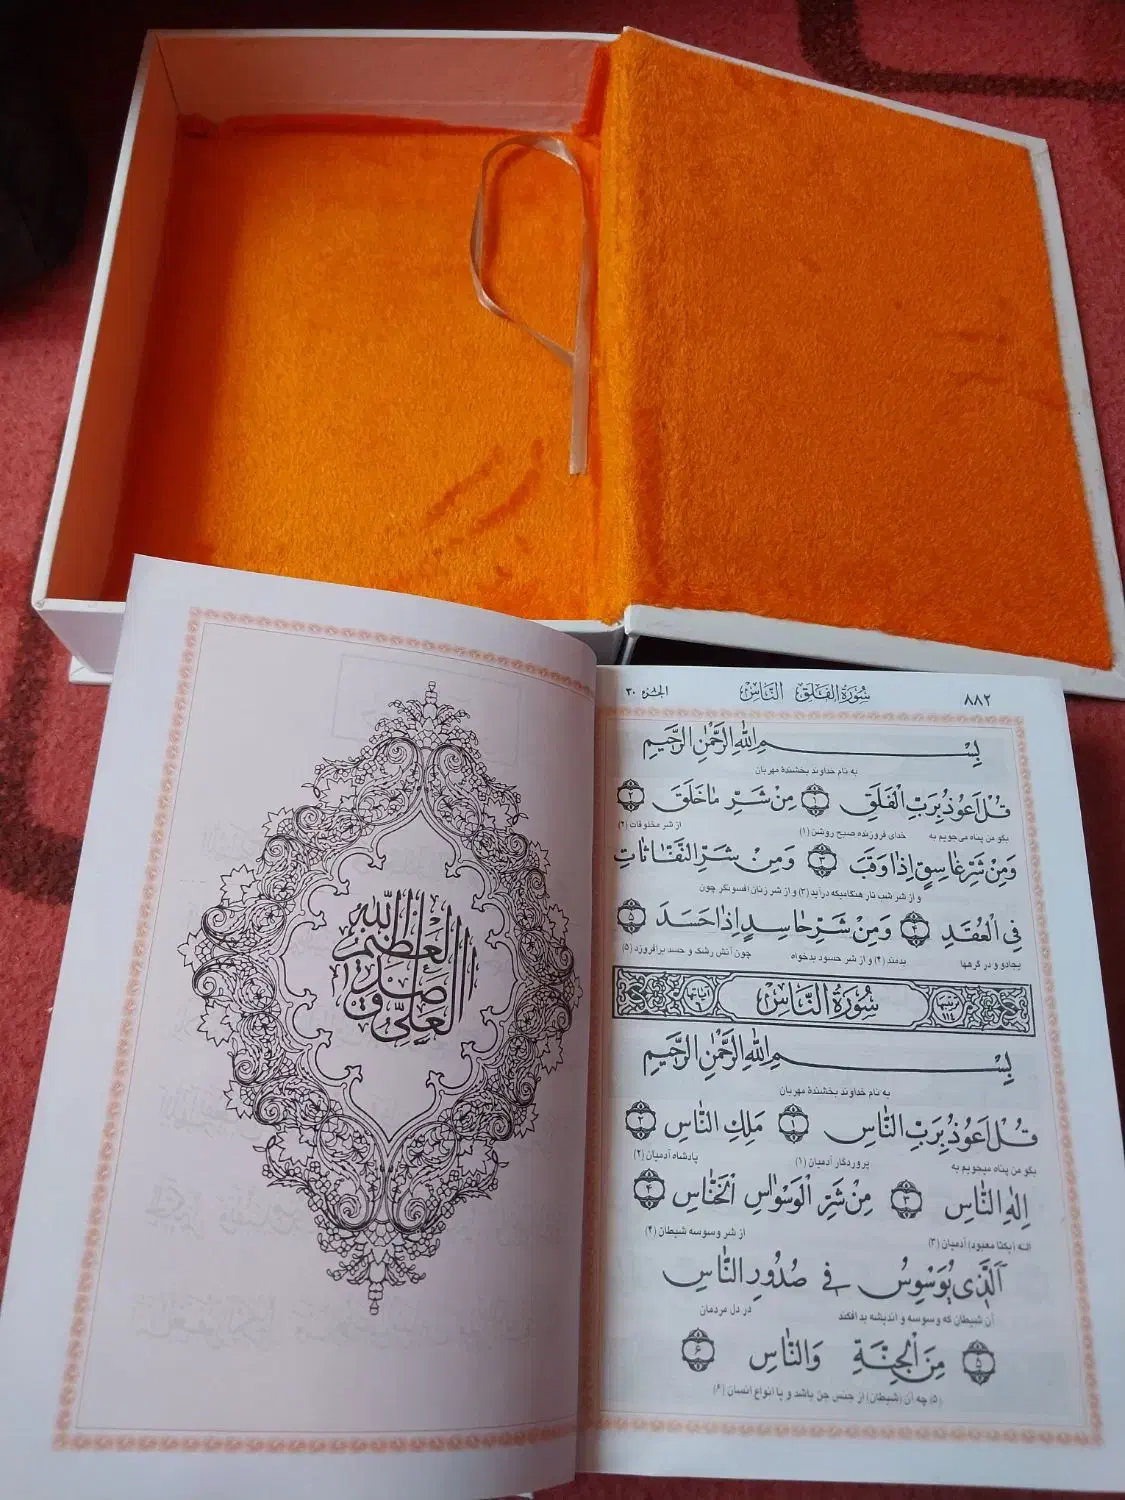 ٨٨٢ سُورَةُ الفَلَق النَّاسْ الجزء ٣٠
بِسْمِ اللهِ الرَّحْمٰنِ الرَّحيمِ
به نام خداوند بخشندهٔ مهربان
قُلْ اَعُوذُ بِرَبِّ الْفَلَقِ ١ مِنْ شَرِّ مٰا خَلَقَ ٢
بگو من پناه می‌جویم به خدای فروزنده صبح روشن (۱) از شر مخلوقات (۲)
وَ مِنْ شَرِّ غٰاسِقٍ اِذٰا وَقَبَ ٣ وَ مِنْ شَرِّ النَّفّٰاثٰاتِ
و از شر شب تار هنگامیکه درآید (۳) و از شر زنان افسونگر چون
فِي الْعُقَدِ ۴ وَ مِنْ شَرِّ حٰاسِدٍ اِذٰا حَسَدَ ۵
بجادو و در گره‌ها بدمند (۴) و از شر حسود بدخواه چون آتش رشک و حسد برافروزد (۵)
سُورَةُ النَّاسْ
بِسْمِ اللهِ الرَّحْمٰنِ الرَّحيمِ
به نام خداوند بخشندهٔ مهربان
قُلْ اَعُوذُ بِرَبِّ النّٰاسِ ١ مَلِكِ النّٰاسِ ٢
بگو من پناه میجویم به پروردگار آدمیان (۱) پادشاه آدمیان (۲)
اِلٰهِ النّٰاسِ ٣ مِنْ شَرِّ الْوَسْوٰاسِ الْخَنّٰاسِ ۴
اله (یکتا معبود) آدمیان (۳) از شر وسوسه شیطان (۴)
اَلَّذي يُوَسْوِسُ في صُدُورِ النّٰاسِ
آن شیطان که وسوسه و اندیشه بد افکند در دل مردمان
۵ مِنَ الْجِنَّةِ وَ النّٰاسِ ۶
(۵) چه آن (شیطان) از جنس جن باشد و یا انواع انسان (۶)
صدق الله العلي العظيم